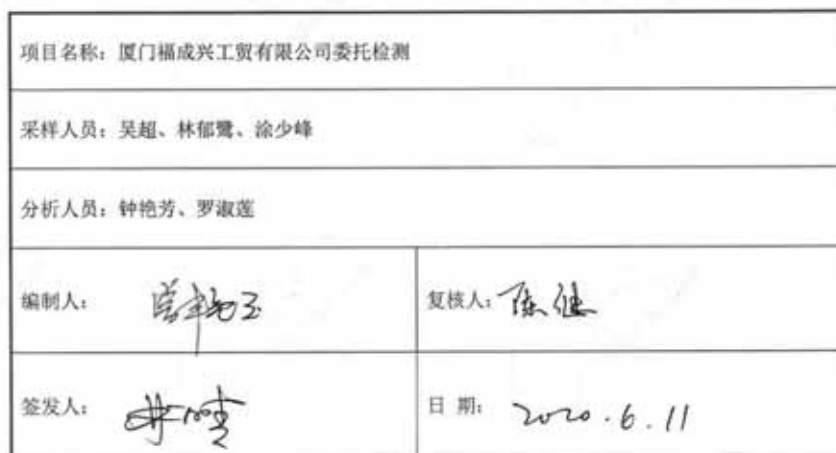 项目名称：厦门福成兴工贸有限公司委托检测
采样人员：吴超、林郁鹭、涂少峰
分析人员：钟艳芳、罗淑莲
编制人：
复核人：陈健
签发人：
日 期：2020.6.11